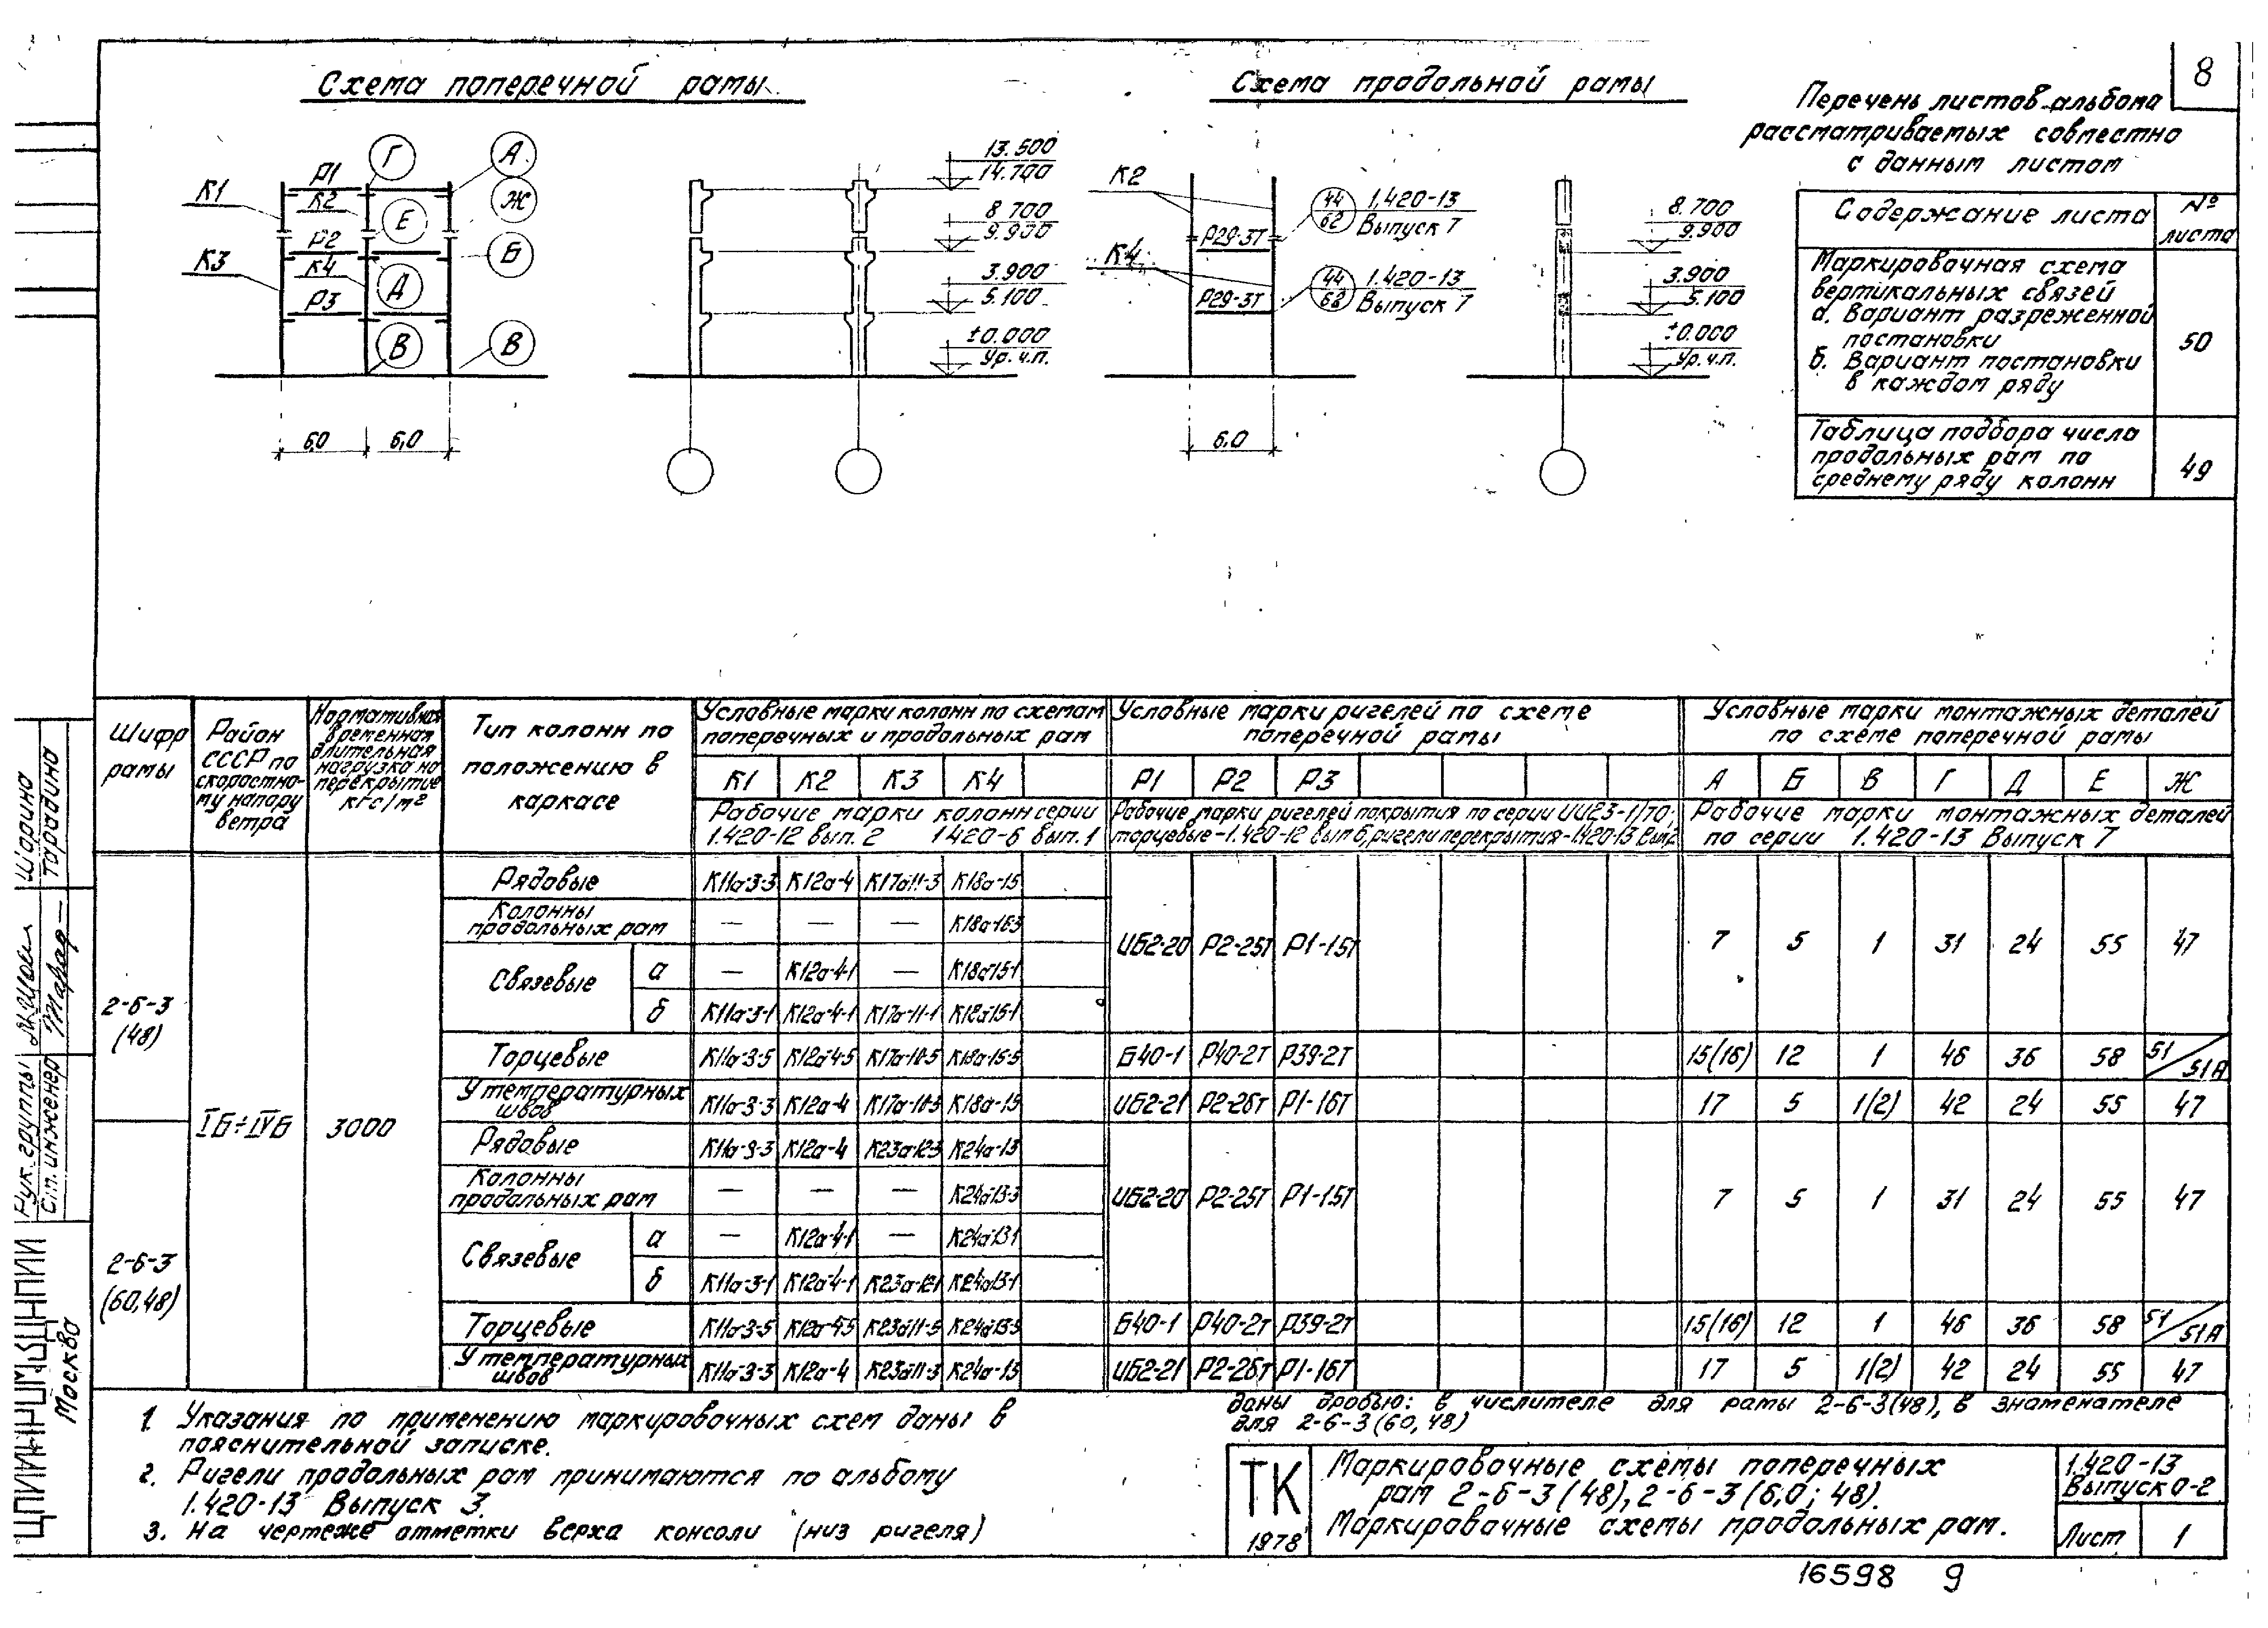 8
Схема поперечной рамы
Схема продольной рамы
Перечень листов альбома
рассматриваемых совместно
с данным листом
Содержание листа
№ листа
Маркировочная схема
вертикальных связей
а. Вариант разреженной
постановки
б. Вариант постановки
в каждом ряду
50
Таблица подбора числа
продольных рам по
среднему ряду колонн
49
К1 Р1 К2 Г А Ж
Е
К3 Р2 К4 Б
Р3 Д
В В
6,0 6,0
13.500
14.700
8.700
9.900
3.900
5.100
±0.000
Ур.ч.п.
К2
Р29-3Т
44 1.420-13
62 Выпуск 7
К4
Р29-3Т
44 1.420-13
62 Выпуск 7
6,0
8.700
9.900
3.900
5.100
±0.000
Ур.ч.п.
Шифр
рамы
Район
СССР по
скоростно-
му напору
ветра
Нормативная
временная
длительная
нагрузка на
перекрытие
кгс/м²
Тип колонн по
положению в
каркасе
Условные марки колонн по схемам
поперечных и продольных рам
К1 К2 К3 К4
Рабочие марки колонн серии
1.420-12 вып. 2 1.420-6 вып. 1
Условные марки ригелей по схеме
поперечной рамы
Р1 Р2 Р3
Рабочие марки ригелей покрытия по серии ИИ23-1/70;
торцевые-1.420-12 вып 6, ригели перекрытия-1.420-13 Вып.2
Условные марки монтажных деталей
по схеме поперечной рамы
А Б В Г Д Е Ж
Рабочие марки монтажных деталей
по серии 1.420-13 Выпуск 7
2-6-3
(48)
IБ÷IVБ 3000
Рядовые К11а-3-3 К12а-4 К17а11-3 К18а-15
Колонны
продольных рам — — — К18а-16-3
Связевые
а — К12а-4-1 — К18а15-1
б К11а-3-1 К12а-4-1 К17а-11-1 К18а15-1
ИБ2-20 Р2-25Т Р1-15Т 7 5 1 31 24 55 47
Торцевые К11а-3-5 К12а-4-5 К17а-10-5 К18а-15-5 Б40-1 Р40-2Т Р39-2Т 15(16) 12 1 46 36 58 51/51А
У температурных
швов К11а-3-3 К12а-4 К17а-10-5 К18а-15 ИБ2-21 Р2-26Т Р1-16Т 17 5 1(2) 42 24 55 47
2-6-3
(60,48)
Рядовые К11а-3-3 К12а-4 К23а-12-3 К24а-13
Колонны
продольных рам — — — К24а13-3
Связевые
а — К12а-4-1 — К24а-13-1
б К11а-3-1 К12а-4-1 К23а-12-1 К24а13-1
ИБ2-20 Р2-25Т Р1-15Т 7 5 1 31 24 55 47
Торцевые К11а-3-5 К12а-4-5 К23а11-5 К24а13-5 Б40-1 Р40-2Т Р39-2Т 15(16) 12 1 46 36 58 51/51А
У температурных
швов К11а-3-3 К12а-4 К23а11-3 К24а-13 ИБ2-21 Р2-26Т Р1-16Т 17 5 1(2) 42 24 55 47
1. Указания по применению маркировочных схем даны в
пояснительной записке.
2. Ригели продольных рам принимаются по альбому
1.420-13 Выпуск 3.
3. На чертеже отметки верха консоли (низ ригеля)
даны дробью: в числителе для рамы 2-6-3(48), в знаменателе
для 2-6-3(60,48)
ТК
1978
Маркировочные схемы поперечных
рам 2-6-3(48), 2-6-3(6,0; 48).
Маркировочные схемы продольных рам.
1.420-13
Выпуск 0-2
Лист 1
16598 9
Рук. группы Шарина
Ст. инженер Тарадина
Москва